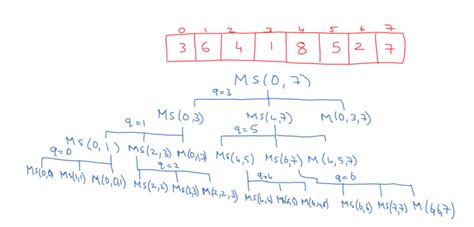 0 1 2 3 4 5 6 7
3 6 4 1 8 5 2 7
MS(0,7)
q=3
MS(0,3) MS(4,7) M(0,3,7)
q=1 q=5
MS(0,1) MS(2,3) M(0,1,3) MS(4,5) MS(6,7) M(4,5,7)
q=0 q=2 q=4 q=6
MS(0,0) MS(1,1) M(0,0,1) MS(2,2) MS(3,3) M(2,2,3) MS(4,4) MS(5,5) M(4,4,5) MS(6,6) MS(7,7) M(6,6,7)